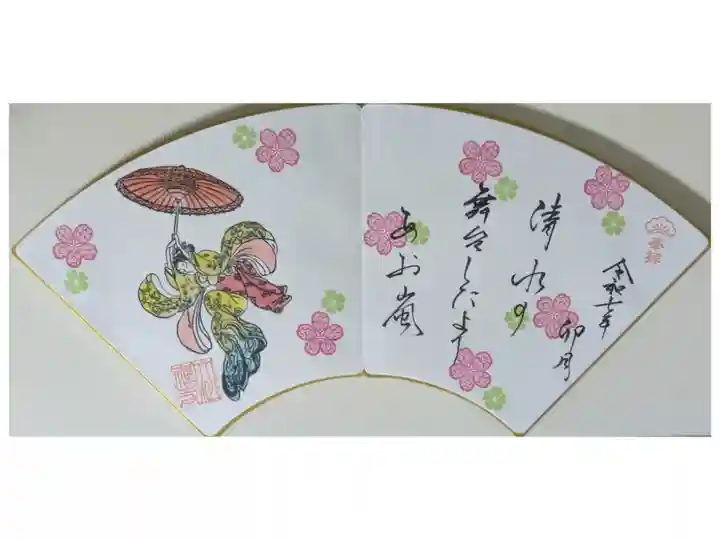 奉拝
令和七年
卯月
清水の
舞台したより
あお嵐